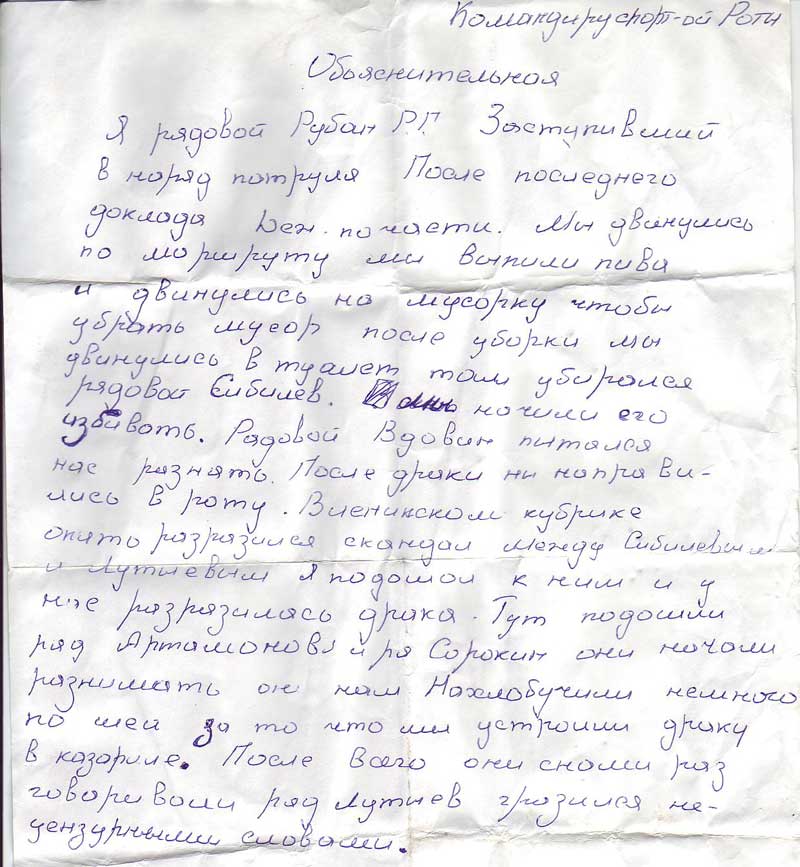 Командиру спорт-ой Роты
Обьяснительная
Я рядовой Рубан Р.Г. Заступивший
в наряд патруля После последнего
доклада Деж. по части. Мы двинулись
по маршруту мы выпили пива
и двинулись на мусорку чтобы
убрать мусор после уборки мы
двинулись в туалет там убирался
рядовой Сибилев. начили его
избивать. Рядовой Вдовин пытался
нас разнять. После драки ни направи-
лись в роту. Вленинском кубрике
опять разразился скандал между Сибилевым
и Лутиевым Я подошол к ним и у
нас разразилась драка. Тут подошли
ряд Артамонов и ря Сорокин они начали
разнимать он нам Нахлобучили немного
по шеи за то что мы устроили драку
в казарме. После Всего они снами раз
говаривали ряд Лутиев грозился не-
цензурными словами.